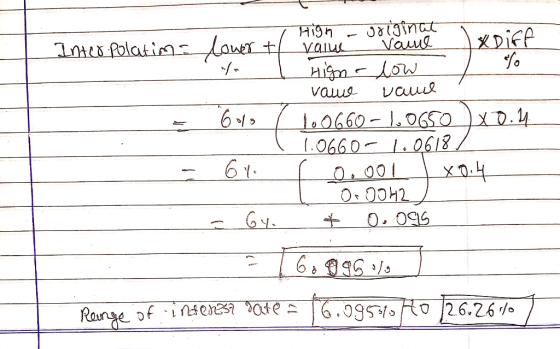 Interpolation = lower % + ( High value - original value / High value - low value ) x Diff %
= 6% ( 1.0660 - 1.0650 / 1.0660 - 1.0618 ) x 0.4
= 6%. ( 0.001 / 0.0042 ) x 0.4
= 6%. + 0.095
= 6.095%
Range of interest rate = 6.095% to 26.26%